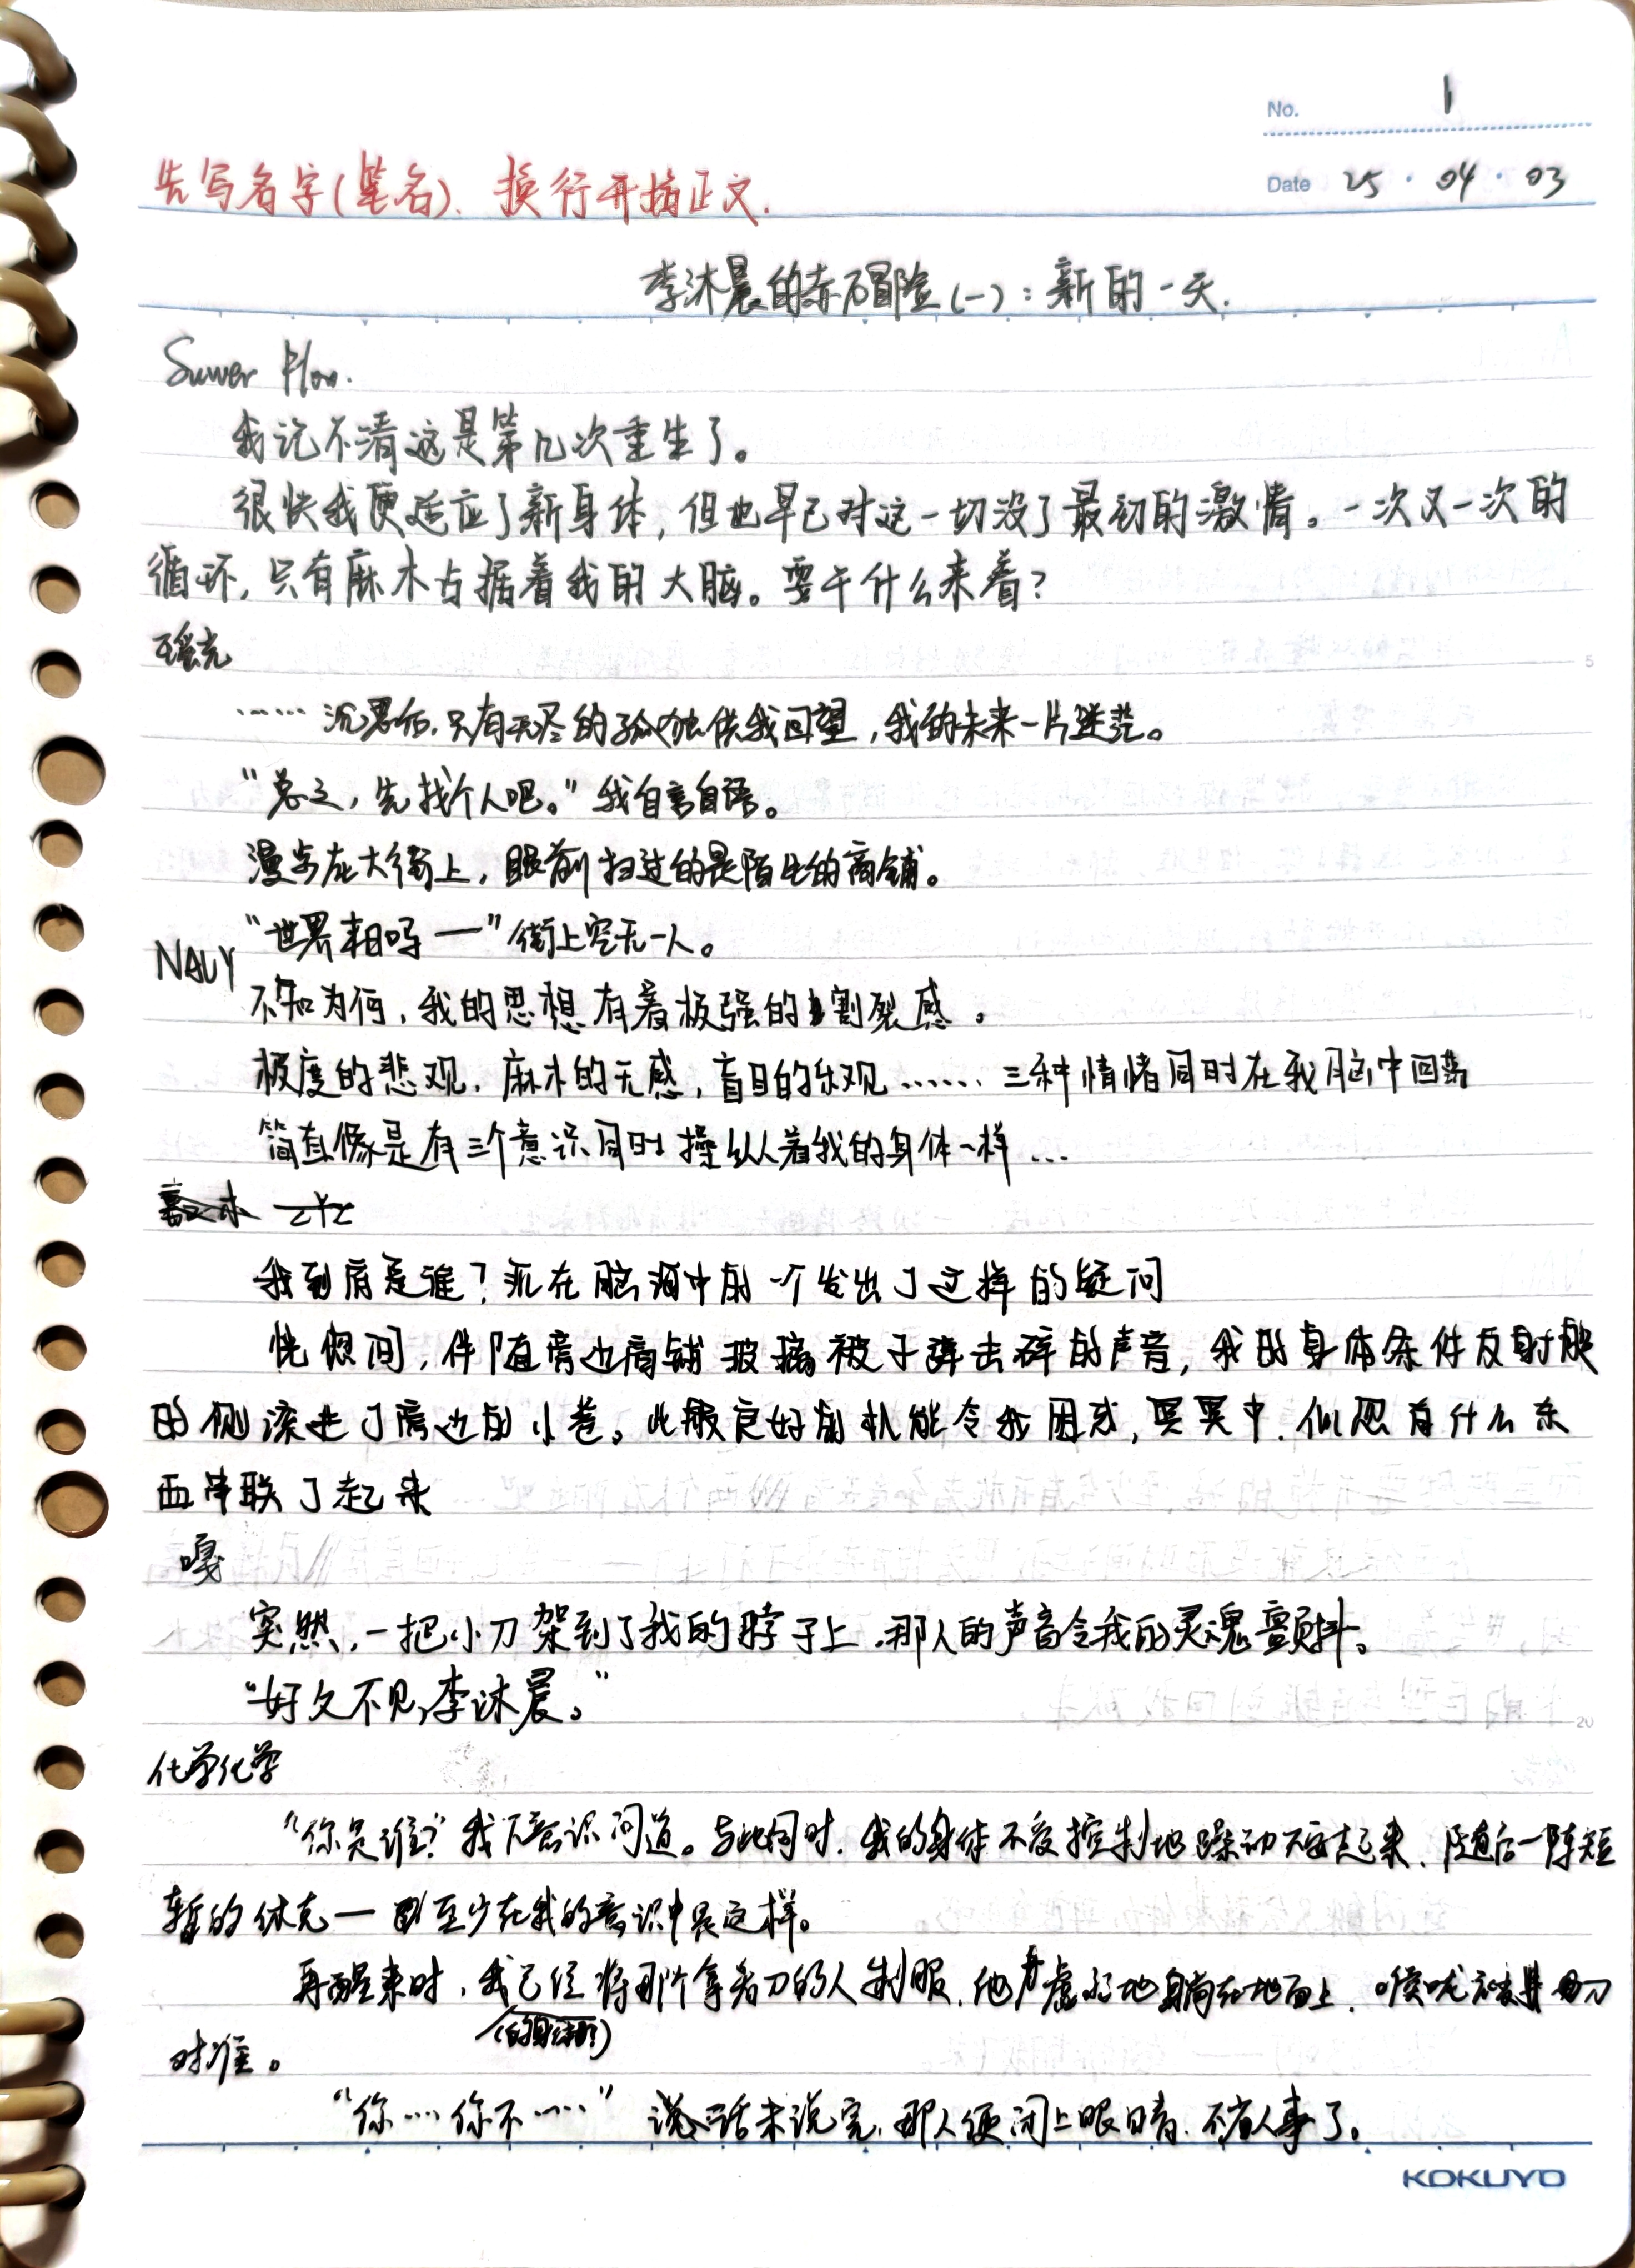 No. 1
先写名字(笔名)、换行开始正文.
Date 25 · 04 · 03
李沐晨的赤石冒险(一):新的一天.
我记不清这是第几次重生了。
很快我便适应了新身体,但也早已对这一切没了最初的激情。一次又一次的
循环,只有麻木占据着我的大脑。要干什么来着?
瑶光
……沉溺后,只有无尽的孤独供我回望,我的未来一片迷茫。
"总之,先找个人吧。"我自言自语。
漫步在大街上,眼前扫过的是陌生的商铺。
"世界末日吗一"街上空无一人。
NAVY
不知为何,我的思想有着极强的割裂感。
极度的悲观、麻木的无感,盲目的乐观……三种情绪同时在我脑中回荡
简直像是有三个意识同时操纵着我的身体一样…
我到底是谁?现在脑海中的一个发出了这样的疑问
恍惚间,伴随旁边商铺玻璃被子弹击碎的声音,我的身体条件反射般
的侧滚进了旁边的小巷。此般良好的机能令我困惑,冥冥中,似忽有什么东
西串联了起来
嘎
突然,一把小刀架到了我的脖子上,那人的声音令我的灵魂颤抖。
"好久不见,李沐晨。"
化学化学
"你是谁?"我下意识问道。与此同时,我的身体不受控制地躁动不安起来,随后一阵短
暂的休克一 至少在我的意识中是这样。
再醒来时,我已经将那个拿着刀的人制服,他虚弱地躺在地面上,喉咙被 刀
对准。
"你……你不……" 话未说完,那人便闭上眼睛,不省人事了。
KOKUYO